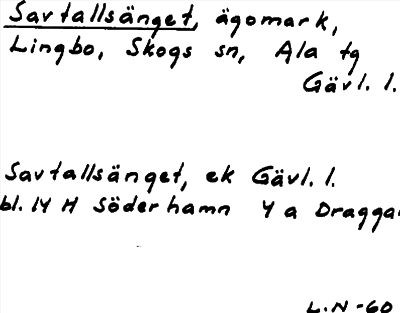 Savtallsänget, ägomark,
Lingbo, Skogs sn, Ala tg
Gävl. l.
Savtallsänget, ek Gävl. l.
bl. 14 H Söderhamn 4 a
L.N-60